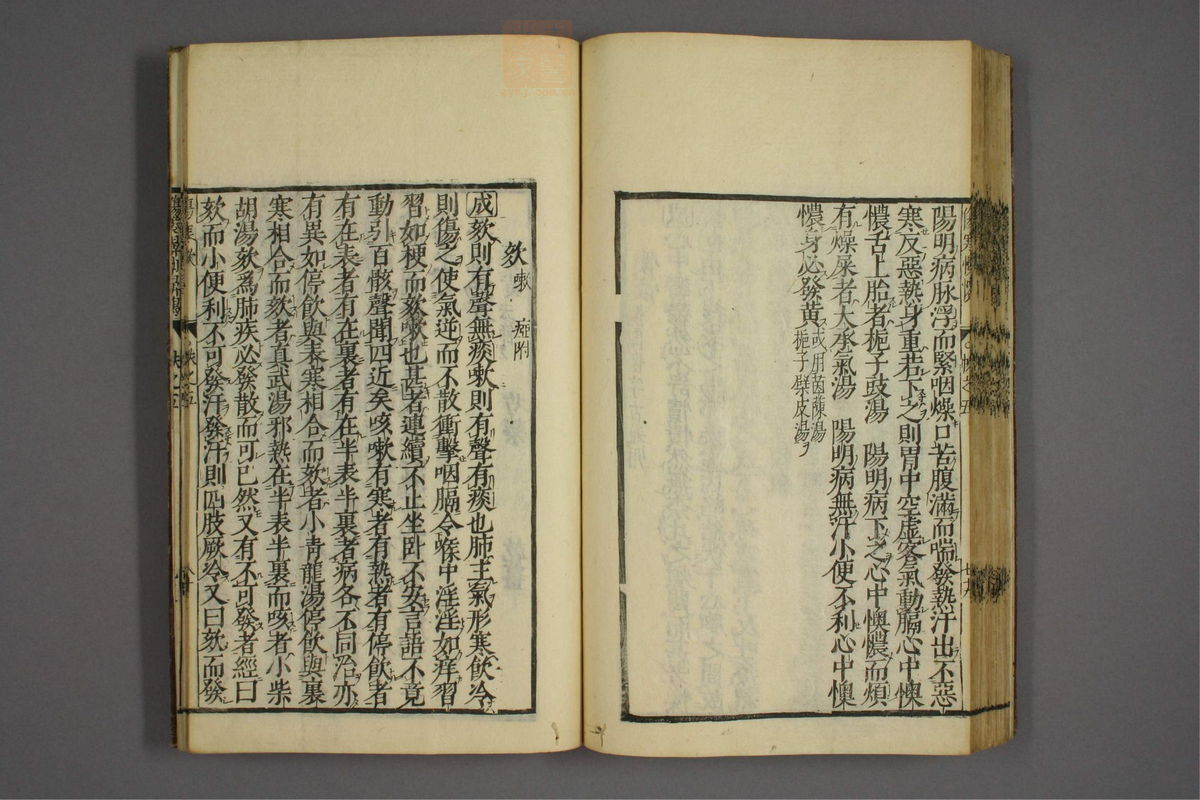 陽明病脉浮而緊咽燥口苦腹滿而喘發熱汗出不惡
寒反惡熱身重若下之則胃中空虛客氣動膈心中懊
憹舌上胎者梔子豉湯　陽明病下之心中懊憹而煩
有燥屎者大承氣湯　陽明病無汗小便不利心中懊
憹身必發黃
或用茵蔯湯
梔子蘗皮湯
欬嗽　痓附
成欬則有聲無痰嗽則有聲有痰也肺主氣形寒飲冷
則傷之使氣逆而不散衝擊咽膈令喉中淫淫如痒習
習如梗而欬嗽也甚者連續不止坐卧不安言語不竟
動引百骸聲聞四近矣咳嗽有寒者有熱者有停飲者
有在表者有在裏者有在半表半裏者病各不同治亦
有異如停飲與表寒相合而欬者小青龍湯停飲與裏
寒相合而欬者真武湯邪熱在半表半裏而咳者小柴
胡湯欬爲肺疾必發散而可已然又有不可發者經曰
欬而小便利不可發汗發汗則四肢厥冷又曰欬而發